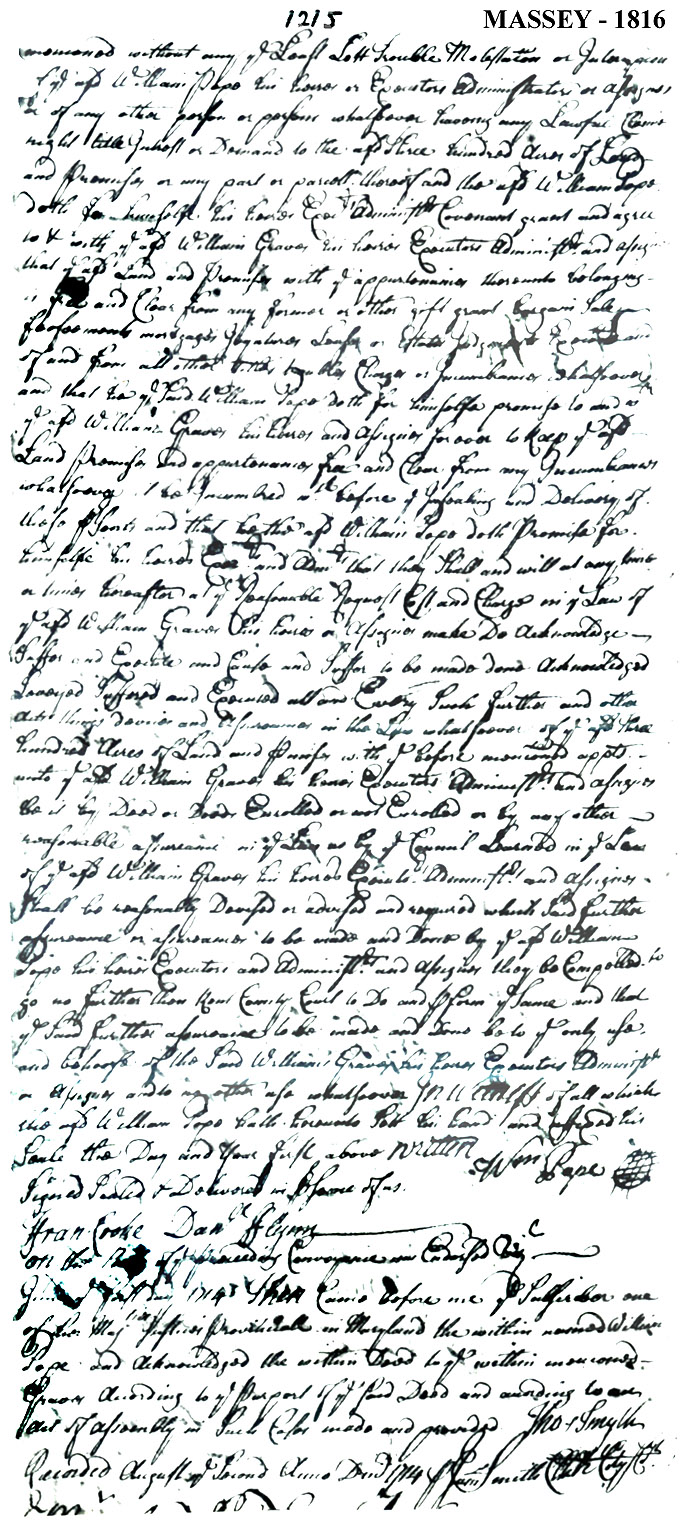 1215
MASSEY - 1816
mencioned without any ye Least Lett trouble Molestation or
ye afd William Pape his heires or Executors Administrators or Assignes
or of any other person or persons whatsoever haveing any Lawfull Claime
right title Intrest or Demand to the afd three hundred Acres of Land
and Premises or any part or parcell thereof and the afd William Pape
doth for himselfe his heires Exectrs Administrs Covenant grant and agree
to & with ye afd William Graves his heires Executors Administrs and assigns
that ye afd Land and Premises with ye appurtenances thereunto belonging
is free and Clear from any former or other gift grant bargain Sale
Feofeements mortgages Joyntures Leases or Estates Judgments Executions
of and from all other titles troubles Charges or Incumbrances whatsoever
and that he ye Said William Pape doth for himselfe promise to and
ye afd William Graves his heires and Assignes forever to Keep ye afd
Land Premises and appurtenances free and Clear from any Incumbrances
whatsoever before ye Insealing and Delivery of
these Psents and that he the afd William Pape doth Promise for
himselfe his heires Exectrs and Admrs that they Shall and will at any time
or times hereafter at ye Reasonable Request Cost and Charge in ye Law of
ye afd William Graves his heires or Assignes make Do Acknowledge
Suffer and Execute and Cause and Suffer to be made done Acknowledged
Leveyed Suffered and Executed all and Every Such further and other
acts things devices and assurances in the Law whatsoever of ye afd three
hundred Acres of Land and Pmises with ye before mentioned appts
unto ye afd William Graves his heires Executors Administrs and assignes
be it by Deed or Deeds Enrolled or not Enrolled or by any other
reasonable assurance in ye Law as by ye Council Learned in ye Law
of ye afd William Graves his heires Executrs Administrs and Assignes
Shall be reasonably Devised or advised and required which Said further
assurance or assurances to be made and Done by ye afd William
Pape his heires Executors and Administrs and Assignes they be Compelled to
go no further then Kent County Court to Do and Pform ye Same and that
ye Said further assurance to be made and Done be to ye only use
and behoofe of the Said William Graves his heires Executors Administrs
or Assignes and to no other use whatsoever In Wittness of all which
the afd William Pape hath hereunto Sett his hand and affixed his
Seale the Day and Year first above written
Wm Pape
Signed Sealed & Delivered in Psence of us
Fran Cooke Danll Flynn
on the of ye preceeding Conveyance was Endorsed Vizt
June ye first day 1714 Then Came before me ye Subscriber one
of her Majties Justices Provinciall in Maryland the within named William
Pape and Acknowledged the within Deed to ye within mencioned
Graves According to ye Purport of ye Said Deed and according to an
Act of assembly in Such Cases made and provided Thos Smyth
Recorded August ye Second Anno Dni 1714 P Smith Clk